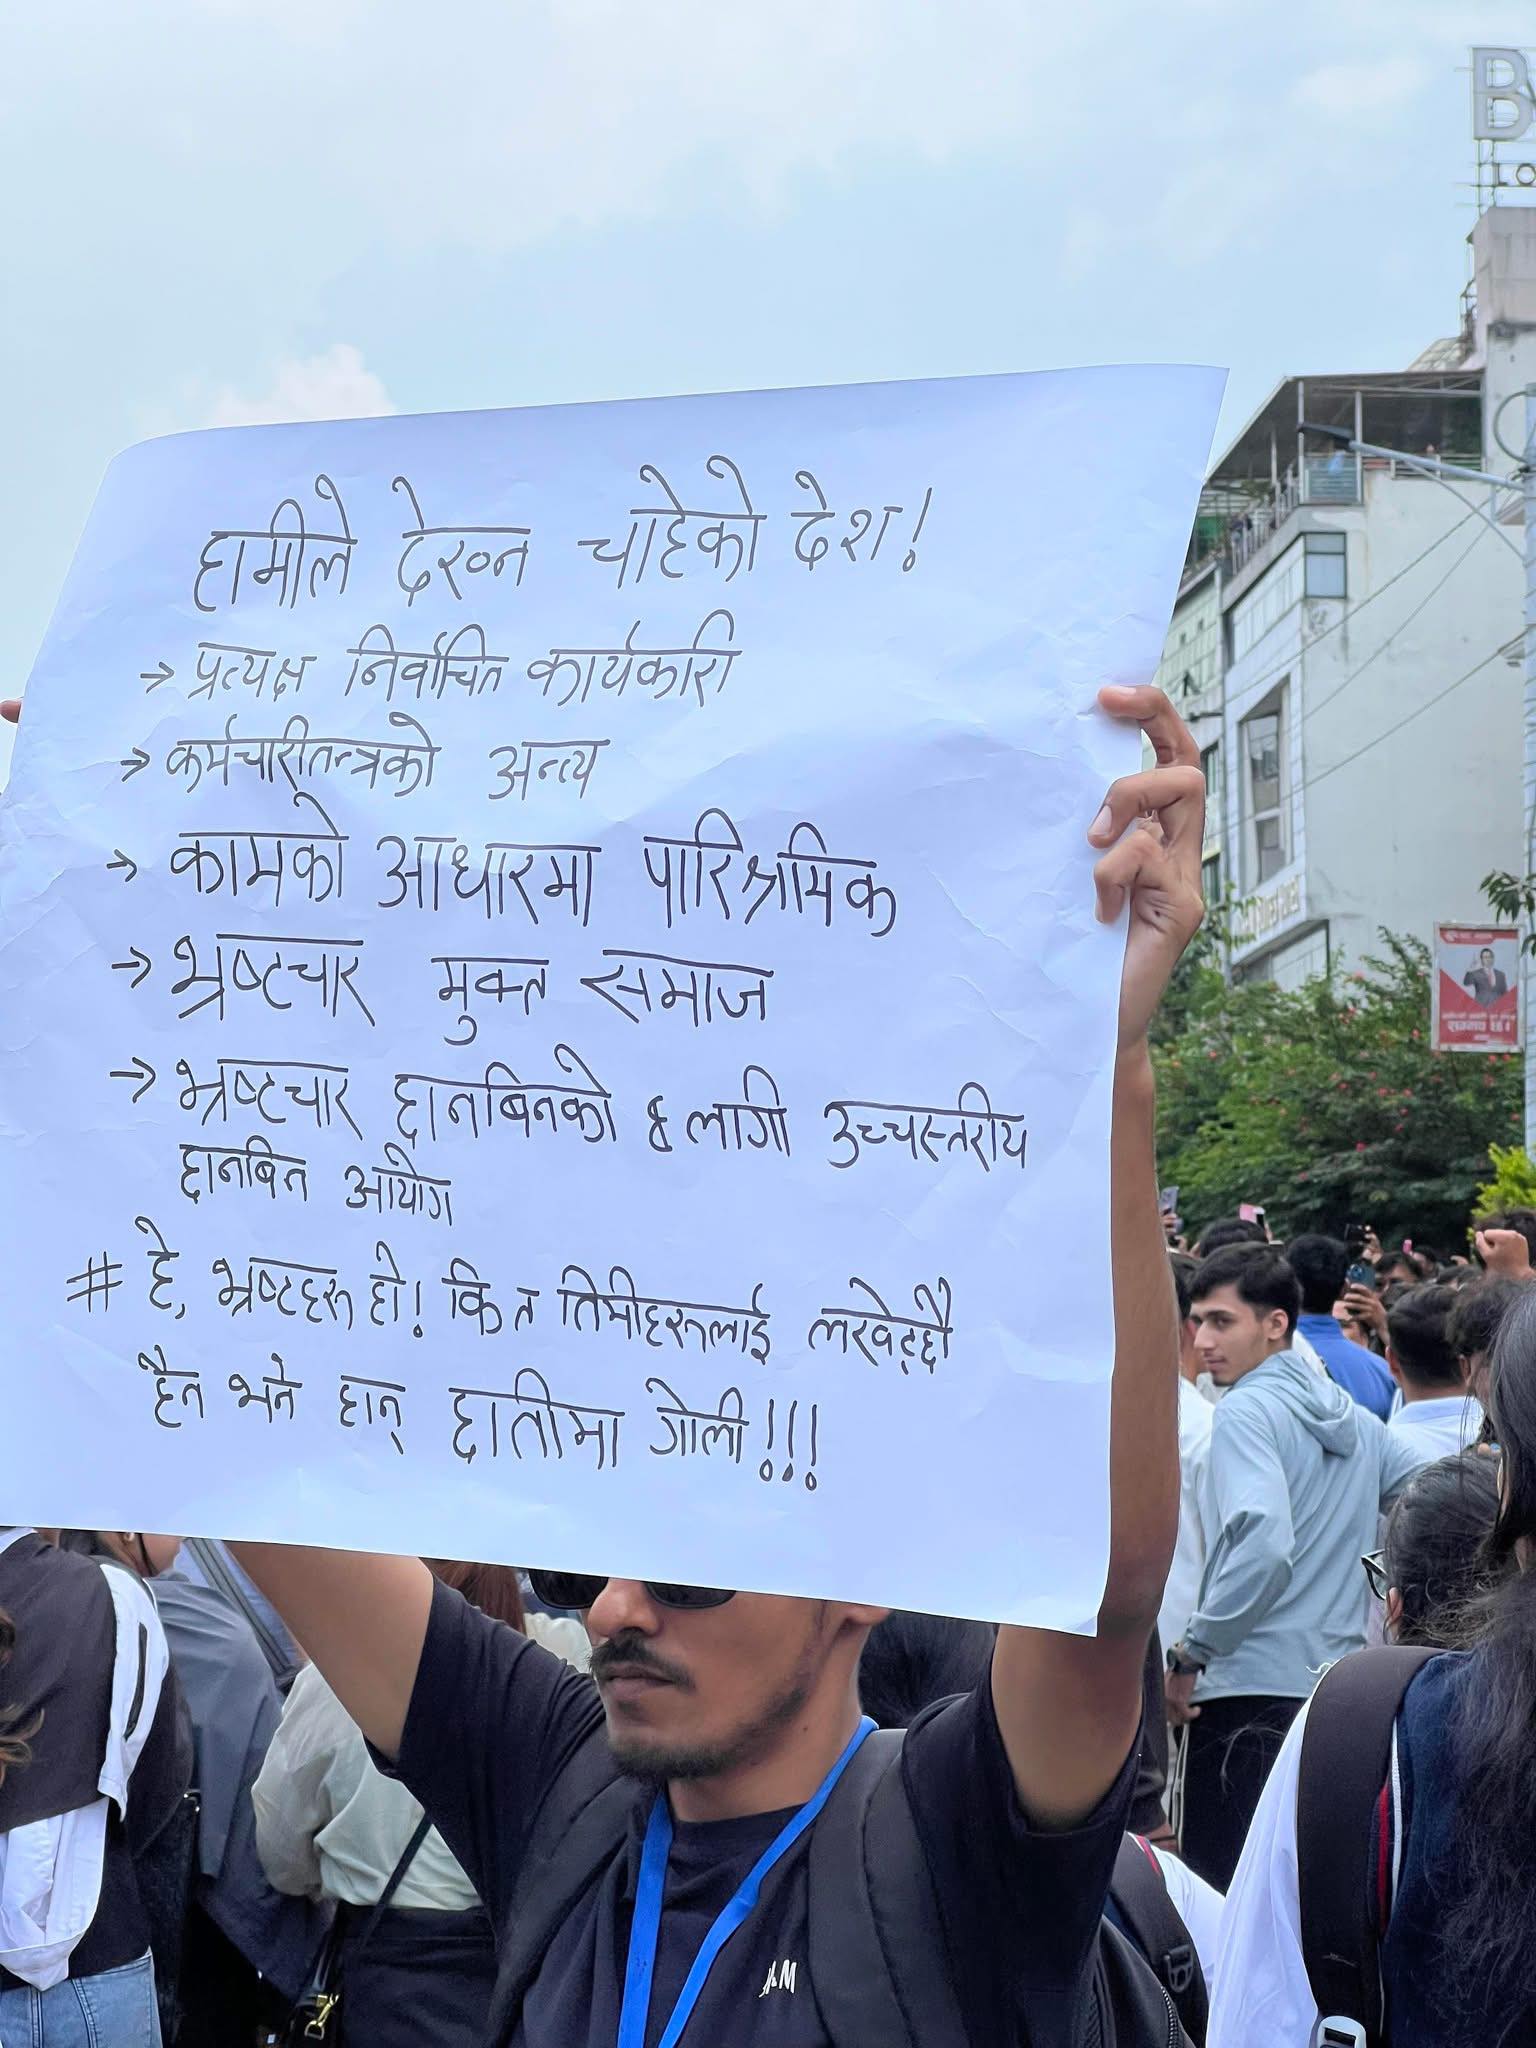 हामीले देख्न चाहेको देश!
→ प्रत्यक्ष निर्वाचित कार्यकारी
→ कर्मचारीतन्त्रको अन्त्य
→ कामको आधारमा पारिश्रमिक
→ भ्रष्टचार मुक्त समाज
→ भ्रष्टचार छानबिनको लागी उच्चस्तरीय
छानबिन आयोग
# हे, भ्रष्टहरू हो! कि त तिमीहरूलाई लखेट्छौ
हैन भने हान् छातीमा गोली!!!
B
LO